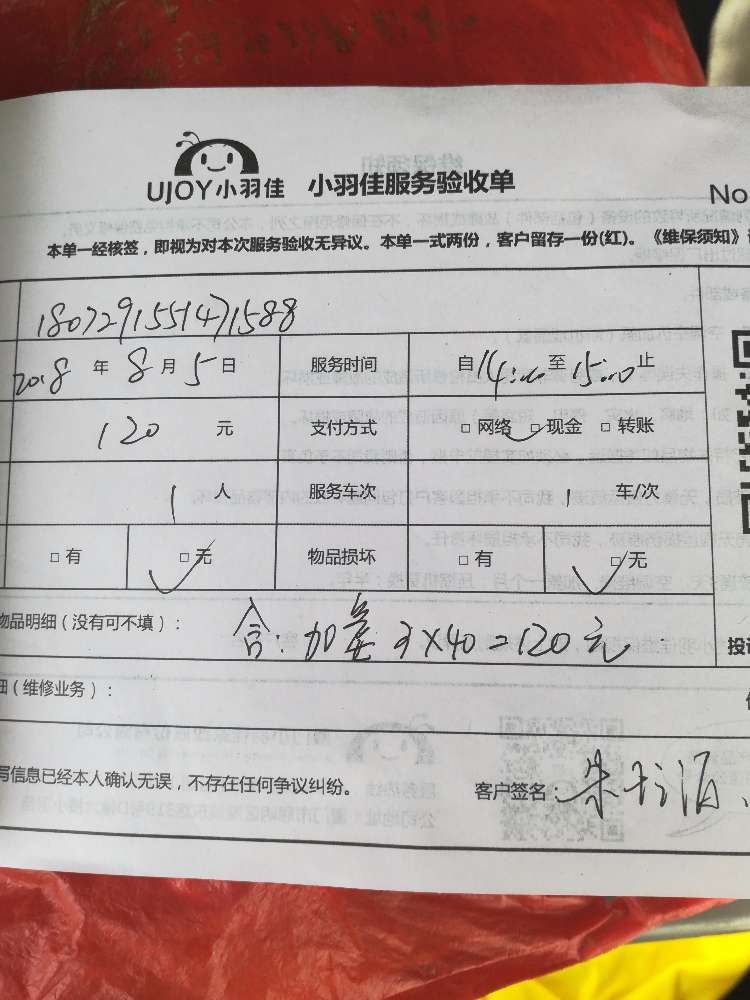 UJOY小羽佳 小羽佳服务验收单
No
本单一经核签，即视为对本次服务验收无异议。本单一式两份，客户留存一份(红)。《维保须知》
1807291551471588
2018年8月5日 服务时间 自14:00至15:00止
120元 支付方式 □网络 □现金 □转账
1人 服务车次 1车/次
□有 □无 物品损坏 □有 □无
物品明细（没有可不填）： 含：加氟 3×40=120元
细（维修业务）：
写信息已经本人确认无误，不存在任何争议纠纷。 客户签名：朱
投诉